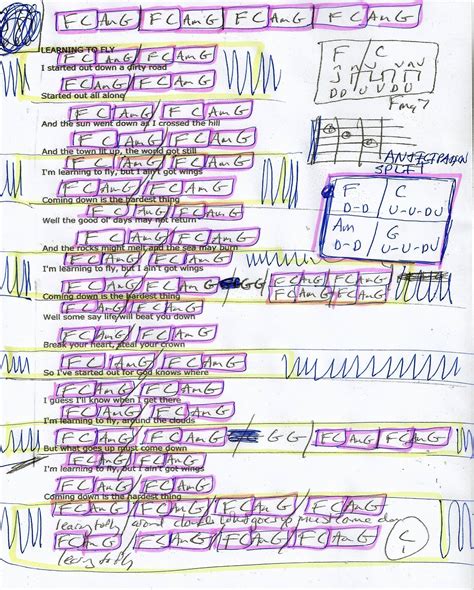 FC AmG FC AmG FC AmG FC AmG
LEARNING TO FLY
FC AmG / FC AmG
I started out down a dirty road
FC AmG / FC AmG
Started out all alone
FC AmG / FC AmG
And the sun went down as I crossed the hill
FC AmG / FC AmG
And the town lit up, the world got still
FC AmG / FC AmG
I'm learning to fly, but I ain't got wings
FC AmG / FC AmG
Coming down is the hardest thing
FC AmG / FC AmG
Well the good ol' days may not return
FC AmG / FC AmG
And the rocks might melt and the sea may burn
FC AmG / FC AmG
I'm learning to fly, but I ain't got wings
FC AmG / FC AmG / GG / FC AmG / FC AmG
FC AmG FC AmG
Coming down is the hardest thing
FC AmG / FC AmG
Well some say life will beat you down
FC AmG / FC AmG
Break your heart, steal your crown
FC AmG / FC AmG
So I've started out for God knows where
FC AmG / FC AmG
I guess I'll know when I get there
FC AmG / FC AmG
I'm learning to fly, around the clouds
FC AmG / FC AmG / GG / FC AmG FC AmG
But what goes up must come down
FC AmG / FC AmG
I'm learning to fly, but I ain't got wings
FC AmG / FC AmG
Coming down is the hardest thing
FC AmG / FC AmG / FC AmG
learning to fly / around clouds / what goes up must come down
FC AmG / FC AmG / FC AmG
learning to fly
F / C
D D U U D U
Fmaj7
ANTICIPATION
SPLIT
F C
D-D U-U-DU
Am G
D-D U-U-DU
C